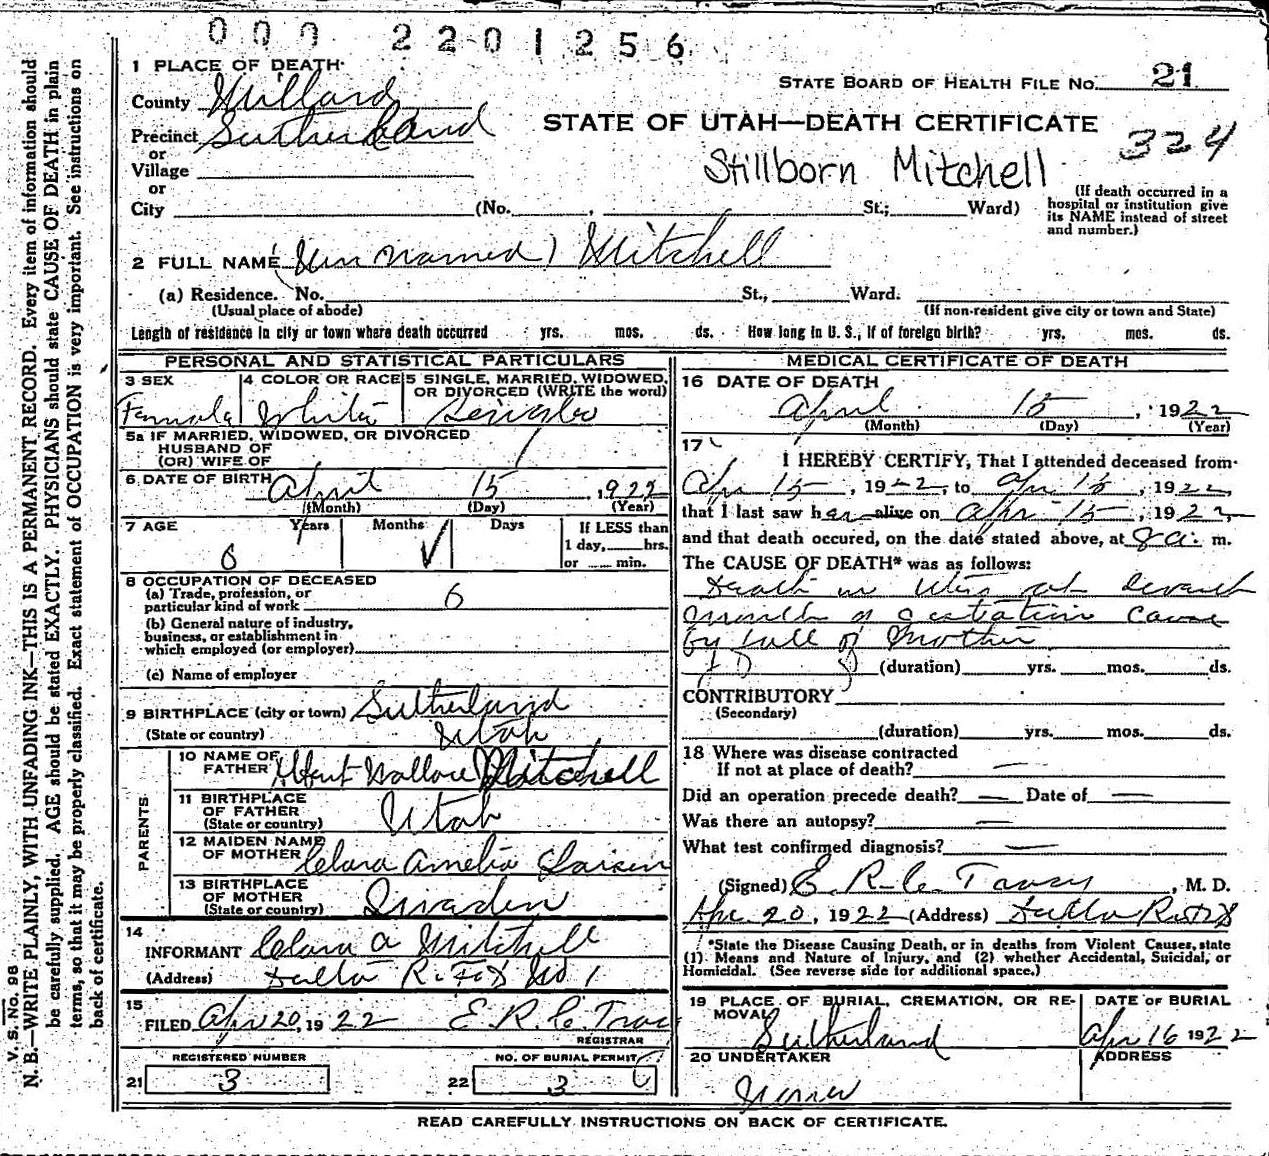 000 2201256
1 PLACE OF DEATH
STATE BOARD OF HEALTH FILE No. 21
County Millard
Precinct Sutherland
STATE OF UTAH—DEATH CERTIFICATE
324
or
Village
Stillborn Mitchell
or
City (No. , St.; Ward)
(If death occurred in a
hospital or institution give
its NAME instead of street
and number.)
2 FULL NAME (Un named) Mitchell
(a) Residence. No. St., Ward.
(Usual place of abode) (If non-resident give city or town and State)
Length of residence in city or town where death occurred yrs. mos. ds. How long in U. S., if of foreign birth? yrs. mos. ds.
PERSONAL AND STATISTICAL PARTICULARS
3 SEX 4 COLOR OR RACE 5 SINGLE, MARRIED, WIDOWED,
OR DIVORCED (WRITE the word)
Female White Single
5a IF MARRIED, WIDOWED, OR DIVORCED
HUSBAND OF
(OR) WIFE OF
6 DATE OF BIRTH April 15, 1922
(Month) (Day) (Year)
7 AGE Years Months Days If LESS than
1 day, hrs.
or min.
0 √
8 OCCUPATION OF DECEASED
(a) Trade, profession, or
particular kind of work 0
(b) General nature of industry,
business, or establishment in
which employed (or employer)
(c) Name of employer
9 BIRTHPLACE (city or town) Sutherland
(State or country) Utah
PARENTS
10 NAME OF
FATHER Albert Wallace Mitchell
11 BIRTHPLACE
OF FATHER
(State or country) Utah
12 MAIDEN NAME
OF MOTHER Clara Amelia Larsen
13 BIRTHPLACE
OF MOTHER
(State or country) Sweden
14
INFORMANT Clara A Mitchell
(Address) Delta R.F.D No 1
15
FILED Apr 20, 1922 E. R. C. Trac
REGISTRAR
REGISTERED NUMBER NO. OF BURIAL PERMIT
21 3 22 3
MEDICAL CERTIFICATE OF DEATH
16 DATE OF DEATH
April 15, 1922
(Month) (Day) (Year)
17
I HEREBY CERTIFY, That I attended deceased from
Apr 15, 1922, to Apr 15, 1922,
that I last saw her alive on Apr 15, 1922,
and that death occured, on the date stated above, at 8 a. m.
The CAUSE OF DEATH* was as follows:
Death in at seventh
month of gestation cause
by fall of Mother
(duration) yrs. mos. ds.
CONTRIBUTORY
(Secondary)
(duration) yrs. mos. ds.
18 Where was disease contracted
If not at place of death? —
Did an operation precede death? — Date of —
Was there an autopsy? —
What test confirmed diagnosis? —
(Signed) E. R. C. , M. D.
Apr. 20, 1922 (Address) Delta
*State the Disease Causing Death, or in deaths from Violent Causes, state
(1) Means and Nature of Injury, and (2) whether Accidental, Suicidal, or
Homicidal. (See reverse side for additional space.)
19 PLACE OF BURIAL, CREMATION, OR RE-
MOVAL
Sutherland
DATE OF BURIAL
Apr 16 1922
20 UNDERTAKER
None
ADDRESS
READ CAREFULLY INSTRUCTIONS ON BACK OF CERTIFICATE.
V. S. No. 98
N. B.—WRITE PLAINLY, WITH UNFADING INK—THIS IS A PERMANENT RECORD. Every item of information should
be carefully supplied. AGE should be stated EXACTLY. PHYSICIANS should state CAUSE OF DEATH in plain
terms, so that it may be properly classified. Exact statement of OCCUPATION is very important. See instructions on
back of certificate.